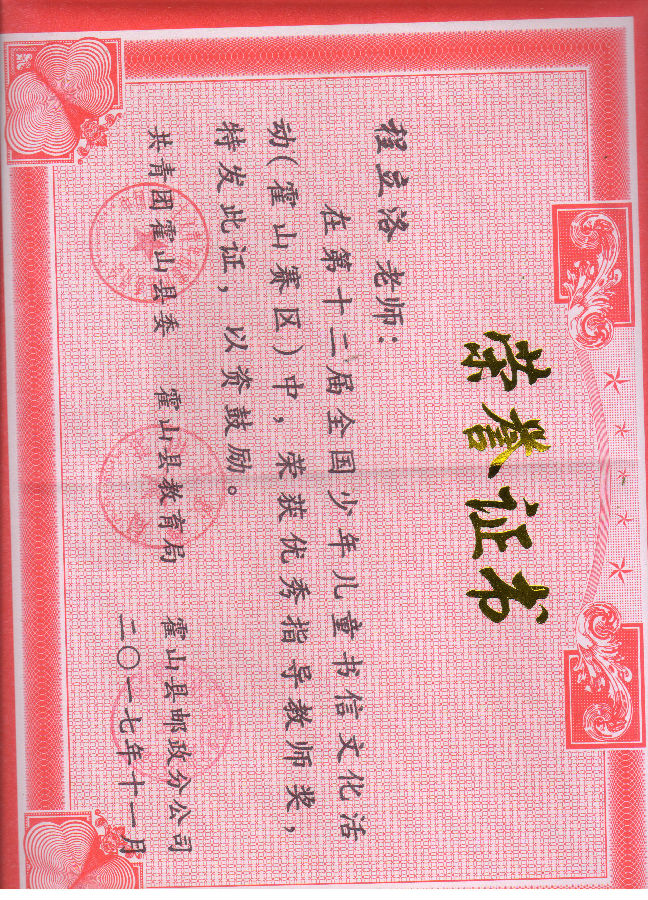 荣誉证书
程立洛 老师：
在第十二届全国少年儿童书信文化活
动(霍山赛区)中，荣获优秀指导教师奖，
特发此证，以资鼓励。
共青团霍山县委 霍山县教育局 霍山县邮政分公司
二〇一七年十一月